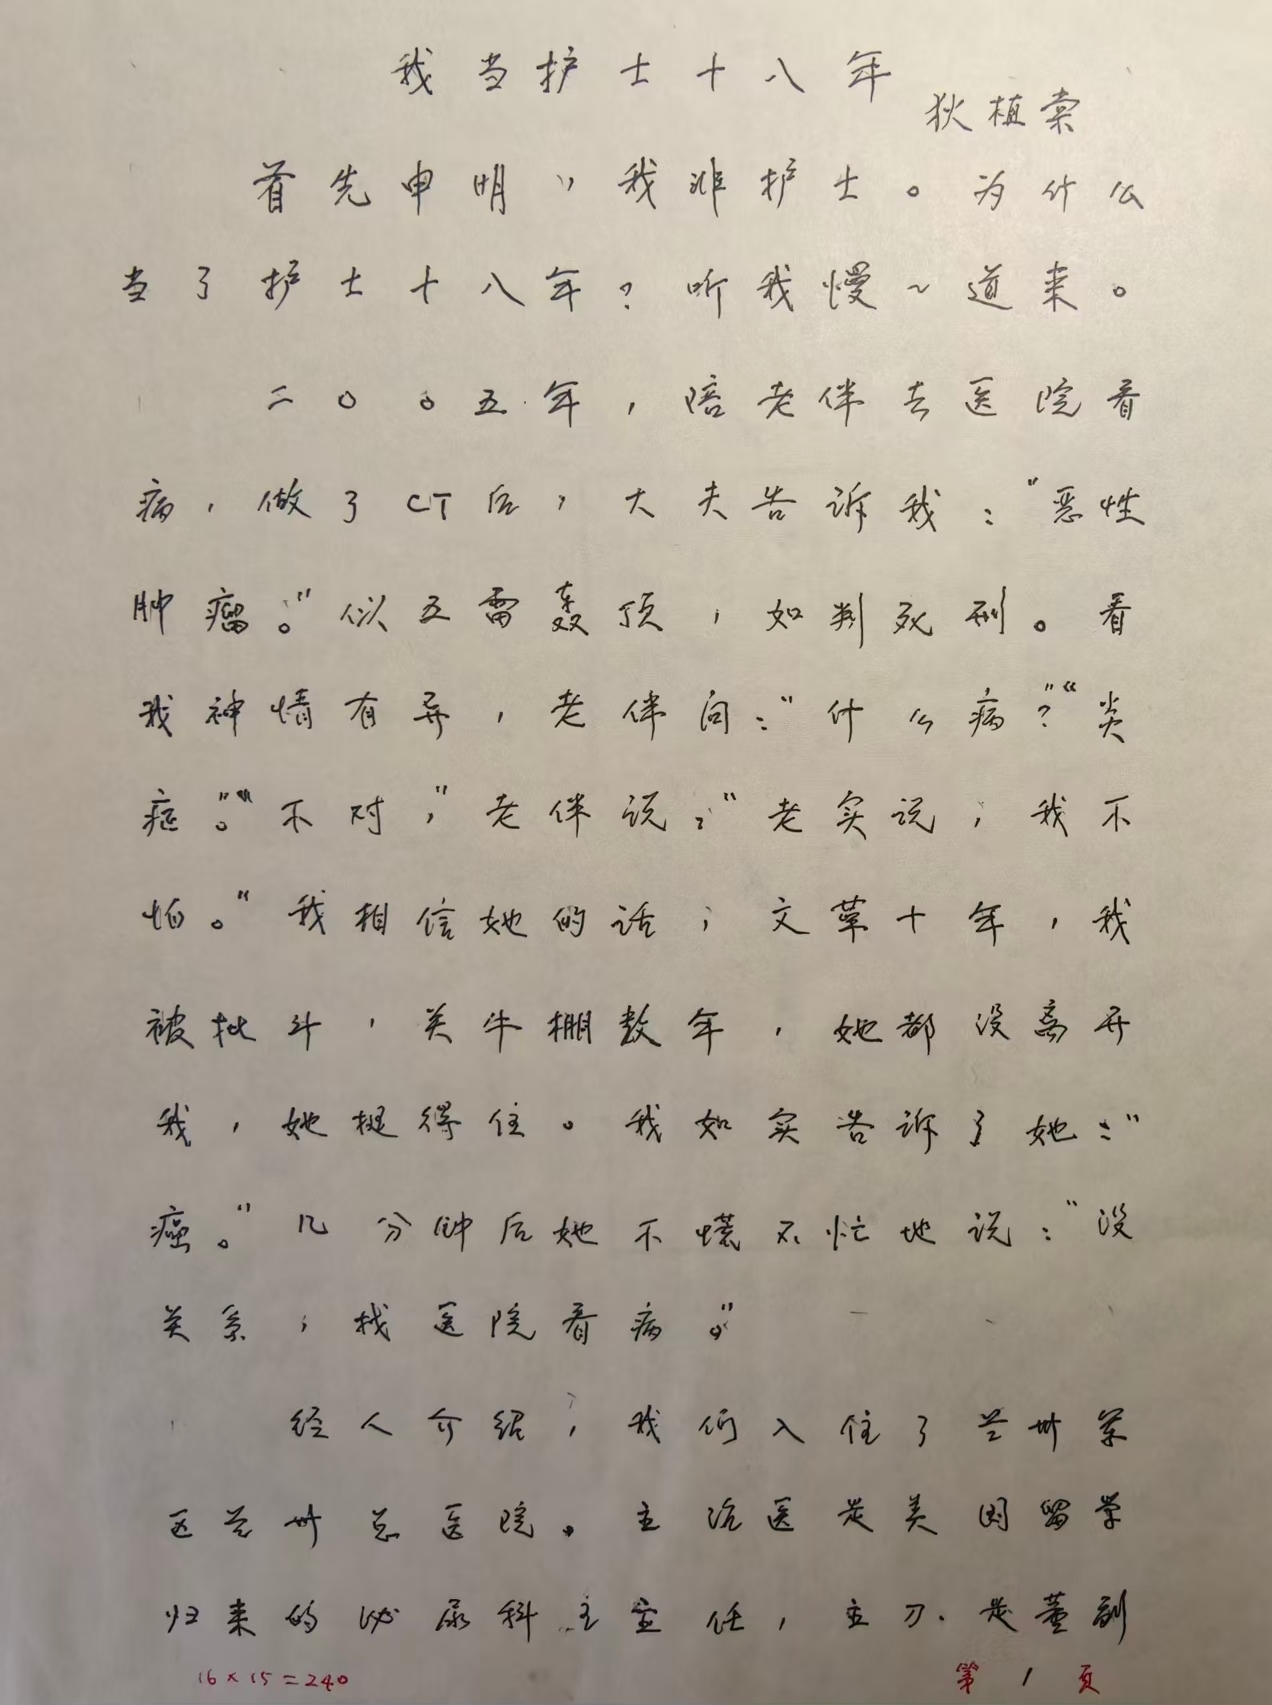 我当护士十八年
狄植棠
首先申明，我非护士。为什么
当了护士十八年？听我慢~道来。
二〇〇五年，陪老伴去医院看
病，做了CT后，大夫告诉我："恶性
肿瘤。"似五雷轰顶，如判死刑。看
我神情有异，老伴问："什么病？""炎
症。""不对，"老伴说："老实说，我不
怕。"我相信她的话，文革十年，我
被批斗，关牛棚数年，她都没离开
我，她挺得住。我如实告诉了她："
癌。"几分钟后她不慌不忙地说："没
关系，找医院看病。"
经人介绍，我们入住了兰州军
区兰州总医院。主治医是美国留学
归来的泌尿科主任，主刀是董副
16×15=240
第1页